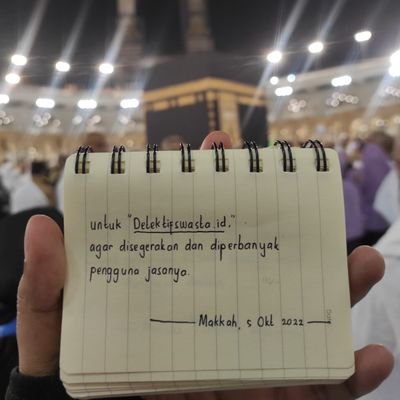 untuk "Detektifswasta.id."
agar disegerakan dan diperbanyak
pengguna jasanya.
Makkah, 5 Okt 2022